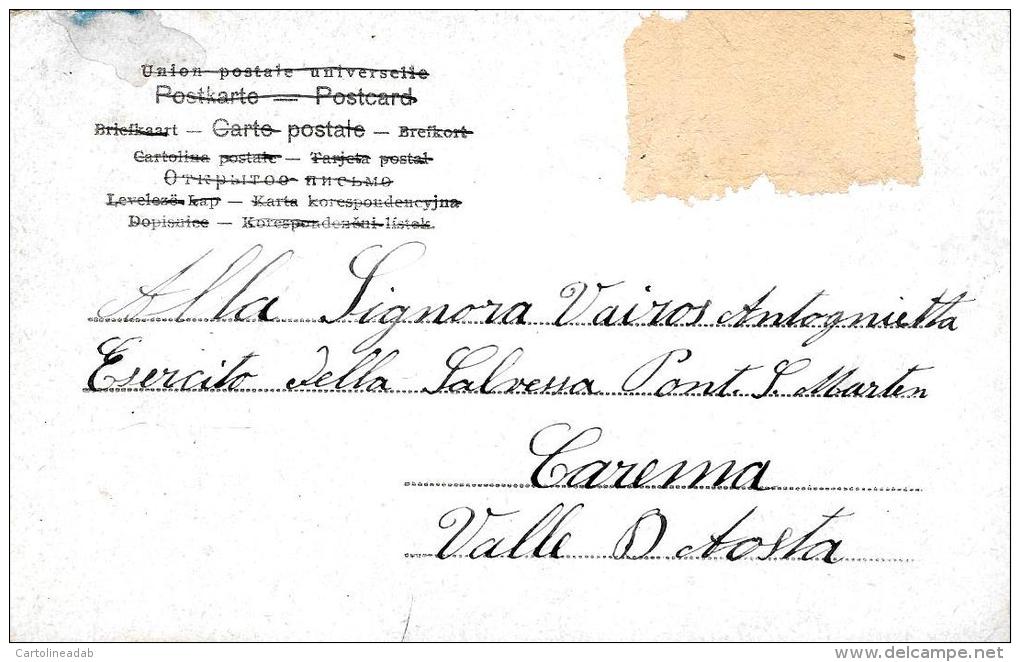 Union postale universelle
Postkarte — Postcard
Briefkaart — Carte postale — Brefkort
Cartolina postale — Tarjeta postal
Открытое письмо
Levelező-kap — Karta korespondencyjna
Dopisnice — Korespondenční lístek.
Alla Signora Vairos Antognietta
Esercito della Salvessa Pont. S. Marten
Carema
Valle D Aosta
Cartolineadab
www.delcampe.net